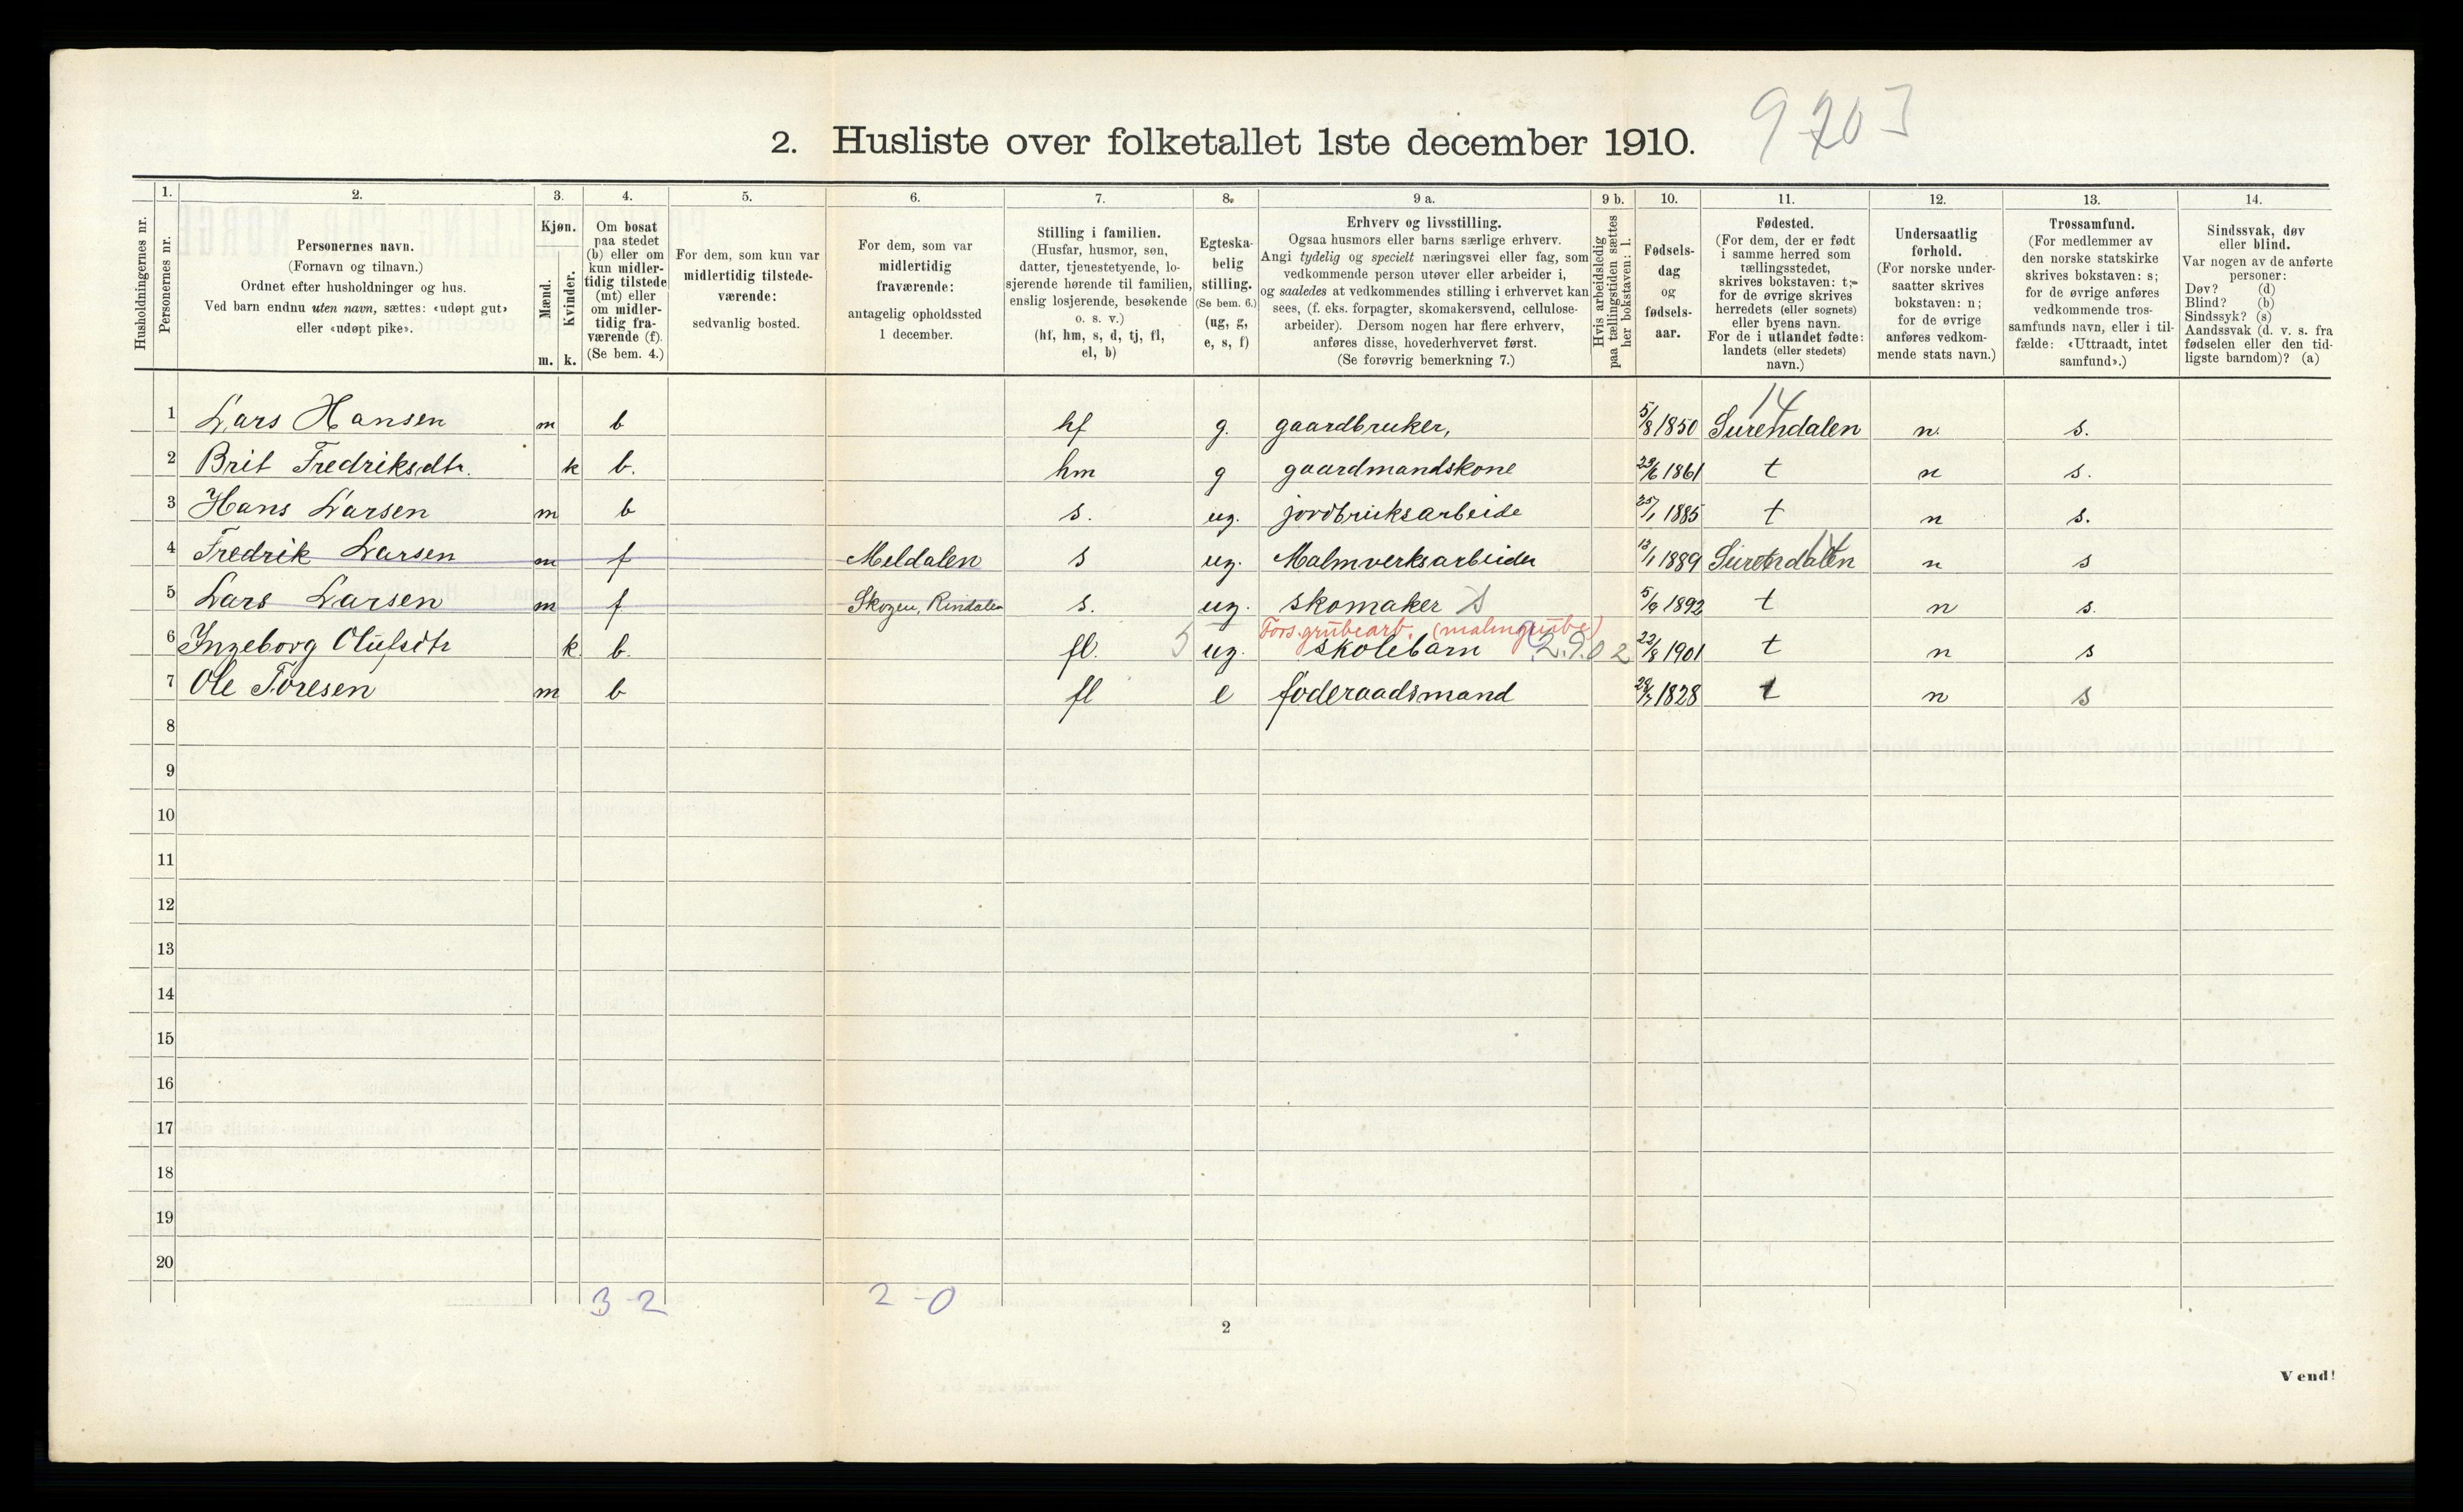 9203
2. Husliste over folketallet 1ste december 1910.
Husholdningernes nr.
1.
Personernes nr.
2.
Personernes navn.
(Fornavn og tilnavn.)
Ordnet efter husholdninger og hus.
Ved barn endnu uten navn, sættes: «udøpt gut»
eller «udøpt pike».
3.
Kjøn.
Mænd.
Kvinder.
m. k.
4.
Om bosat
paa stedet
(b) eller om
kun midler-
tidig tilstede
(mt) eller
om midler-
tidig fra-
værende (f).
(Se bem. 4.)
5.
For dem, som kun var
midlertidig tilstede-
værende:
sedvanlig bosted.
6.
For dem, som var
midlertidig
fraværende:
antagelig opholdssted
1 december.
7.
Stilling i familien.
(Husfar, husmor, søn,
datter, tjenestetyende, lo-
sjerende hørende til familien,
enslig losjerende, besøkende
o. s. v.)
(hf, hm, s, d, tj, fl,
el, b)
8.
Egteska-
belig
stilling.
(Se bem. 6.)
(ug, g,
e, s, f)
9 a.
Erhverv og livsstilling.
Ogsaa husmors eller barns særlige erhverv.
Angi tydelig og specielt næringsvei eller fag, som
vedkommende person utøver eller arbeider i,
og saaledes at vedkommendes stilling i erhvervet kan
sees, (f. eks. forpagter, skomakersvend, cellulose-
arbeider). Dersom nogen har flere erhverv,
anføres disse, hovederhvervet først.
(Se forøvrig bemerkning 7.)
9 b.
Hvis arbeidsledig
paa tællingstiden sættes
her bokstaven: l.
10.
Fødsels-
dag
og
fødsels-
aar.
11.
Fødested.
(For dem, der er født
i samme herred som
tællingsstedet,
skrives bokstaven: t;
for de øvrige skrives
herredets (eller sognets)
eller byens navn.
For de i utlandet fødte:
landets (eller stedets)
navn.)
12.
Undersaatlig
forhold.
(For norske under-
saatter skrives
bokstaven: n;
for de øvrige
anføres vedkom-
mende stats navn.)
13.
Trossamfund.
(For medlemmer av
den norske statskirke
skrives bokstaven: s;
for de øvrige anføres
vedkommende tros-
samfunds navn, eller i til-
fælde: «Uttraadt, intet
samfund».)
14.
Sindssvak, døv
eller blind.
Var nogen av de anførte
personer:
Døv? (d)
Blind? (b)
Sindssyk? (s)
Aandssvak (d. v. s. fra
fødselen eller den tid-
ligste barndom)? (a)
14
1 Lars Hansen m b hf g. gaardbruker, 5/8 1850 Surendalen n. s.
2 Brit Fredriksdtr. k b. hm g gaardmandskone 23/6 1861 t n s.
3 Hans Larsen m b s. ug. jordbruksarbeide 25/1 1885 t n s.
14
4 Fredrik Larsen m f Meldalen s ug. Malmverksarbeider 13/1 1889 Surendalen n s
5 Lars Larsen m f Skogen, Rindalen s. ug. skomaker s 5/9 1892 t n s.
Fors. grubearb. (malmgrube)
6 Ingeborg Olufsdtr k. b. fl. 5 ug. skolebarn 2.9.02 22/8 1901 t n s
7 Ole Toresen m b fl e føderaadsmand 1828 t n s
8
9
10
11
12
13
14
15
16
17
18
19
20
3-2 2-0
2
Vend!